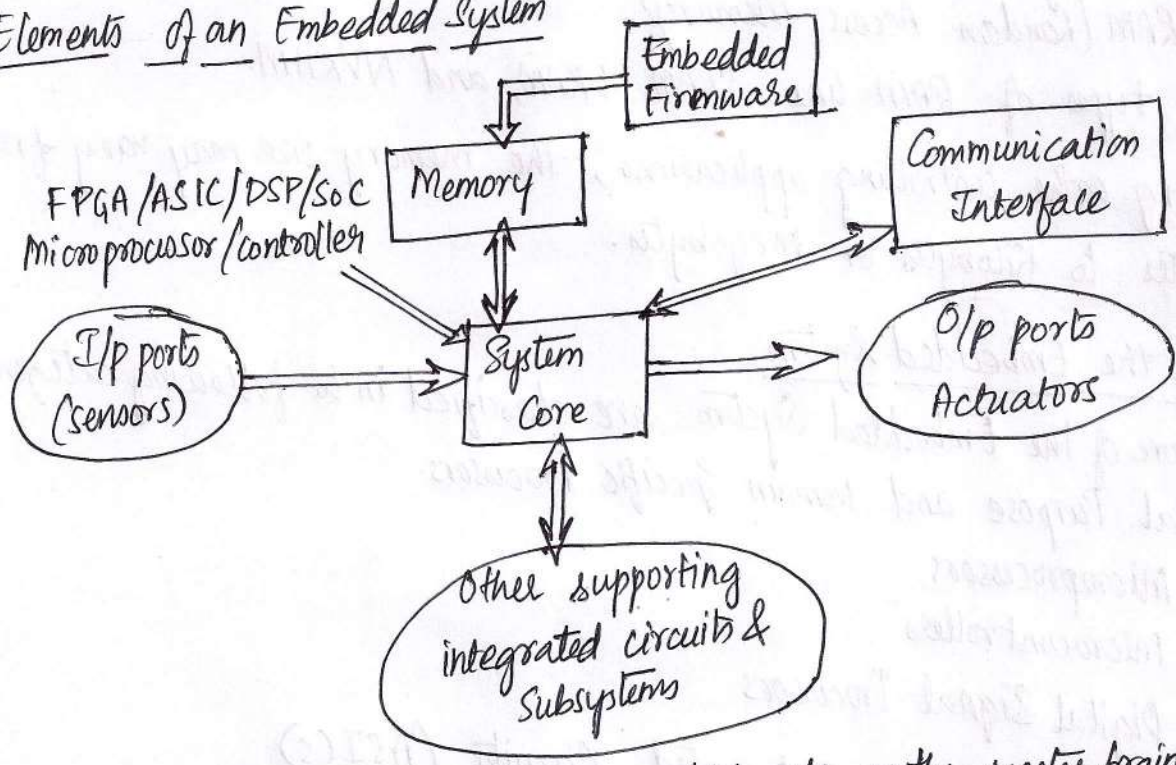 Elements of an Embedded System
Embedded
Firmware
Memory
Communication
Interface
FPGA/ASIC/DSP/SoC
Microprocessor/controller
I/p ports
(sensors)
System
Core
O/p ports
Actuators
Other supporting
integrated circuits &
Subsystems